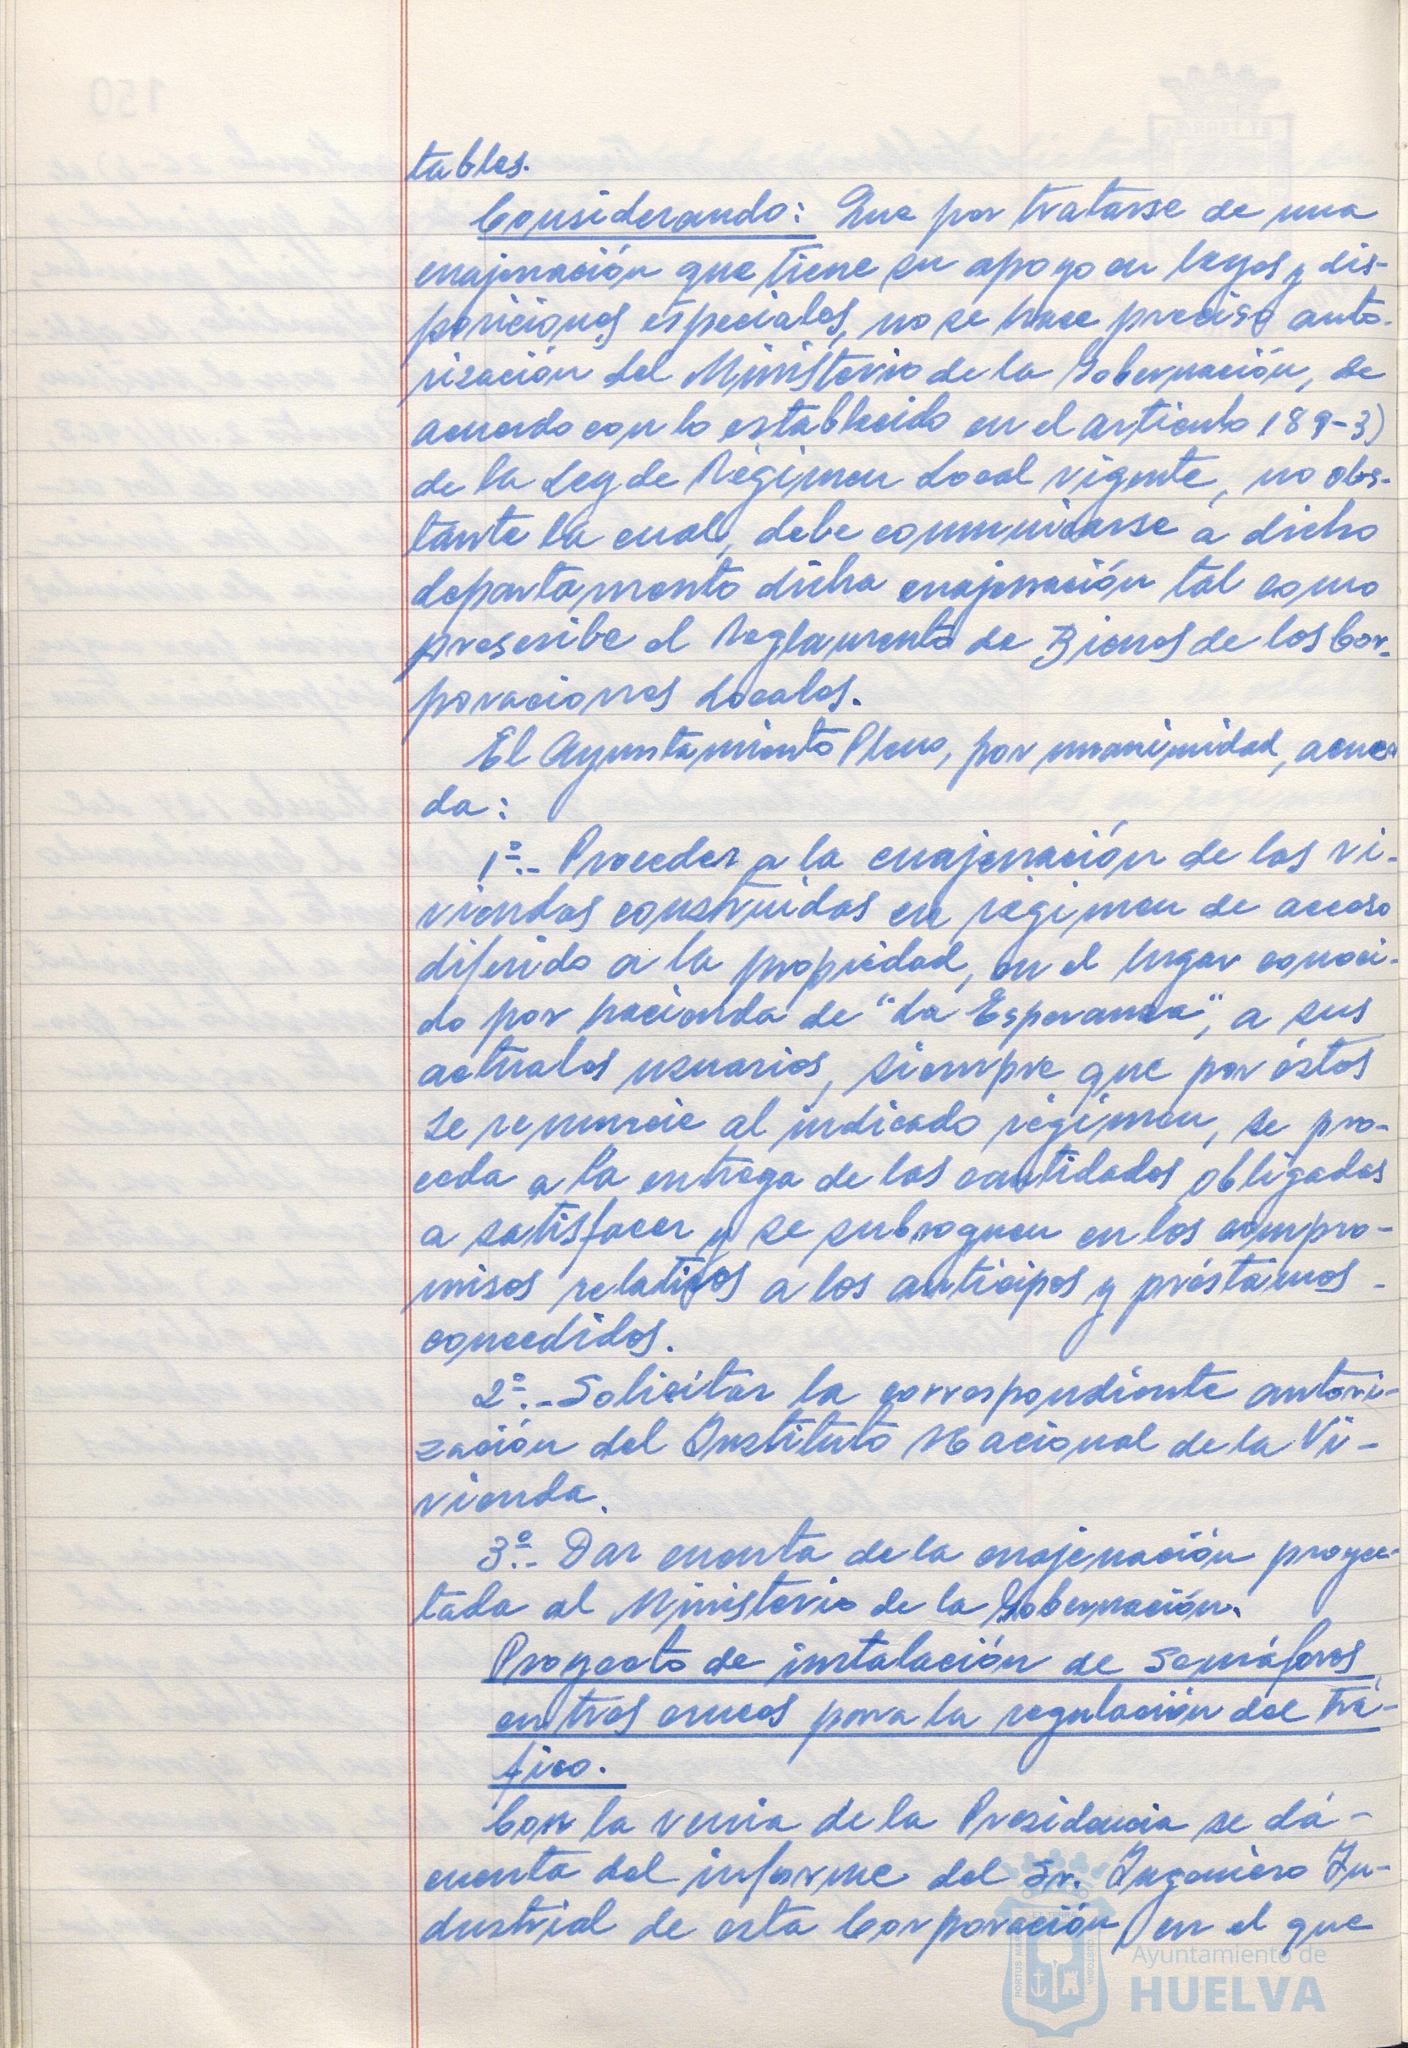 tables.
Considerando: Que por tratarse de una
enajenación que tiene su apoyo en leyes y dis-
posiciones especiales, no se hace preciso auto-
rización del Ministerio de la Gobernación, de
acuerdo con lo establecido en el artículo 189-3)
de la Ley de Régimen Local vigente, no obs-
tante la cual, debe comunicarse a dicho
departamento dicha enajenación tal como
prescribe el Reglamento de Bienes de los Cor-
poraciones Locales.
El Ayuntamiento Pleno, por unanimidad, acuer-
da:
1º.- Proceder a la enajenación de las vi-
viendas construidas en régimen de acceso
diferido a la propiedad, en el lugar conoci-
do por hacienda de "La Esperanza", a sus
actuales usuarios, siempre que por éstos
se renuncie al indicado régimen, se pro-
ceda a la entrega de las cantidades obligadas
a satisfacer y se subroguen en los compro-
misos relativos a los anticipos y préstamos -
concedidos.
2º.- Solicitar la correspondiente autori-
zación del Instituto Nacional de la Vi-
vienda.
3º.- Dar cuenta de la enajenación proyec-
tada al Ministerio de la Gobernación.
Proyecto de instalación de Semáforos
en tres cruces para la regulación del Trá-
fico.
Con la venia de la Presidencia se dá -
cuenta del informe del Sr. Ingeniero In-
dustrial de esta Corporación, en el que
Ayuntamiento de
HUELVA